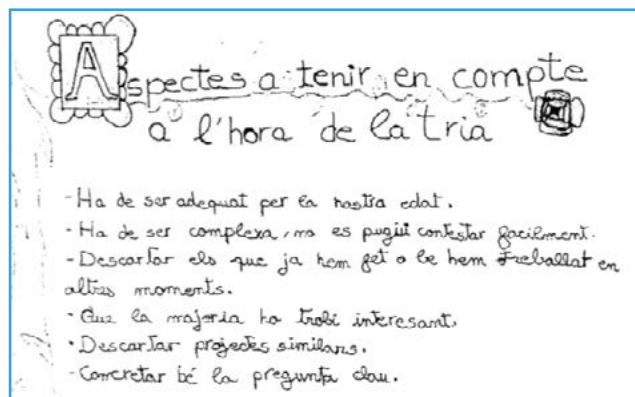 Aspectes a tenir en compte
a l'hora de la tria
- Ha de ser adequat per la nostra edat.
- Ha de ser complexa, no es pugui contestar facilment.
- Descartar els que ja hem fet o be hem treballat en
altres moments.
- Que la majoria ho trobi interesant.
- Descartar projectes similars.
- Concretar bé la pregunta clau.